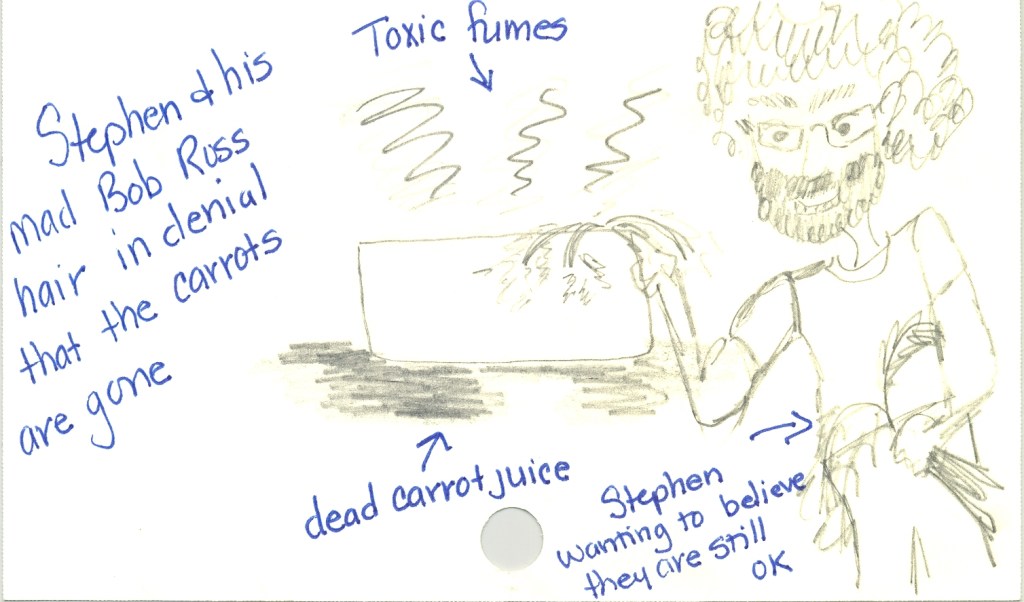 Toxic fumes
Stephen & his
mad Bob Ross
hair in denial
that the carrots
are gone
dead carrot juice
Stephen
wanting to believe
they are still
OK